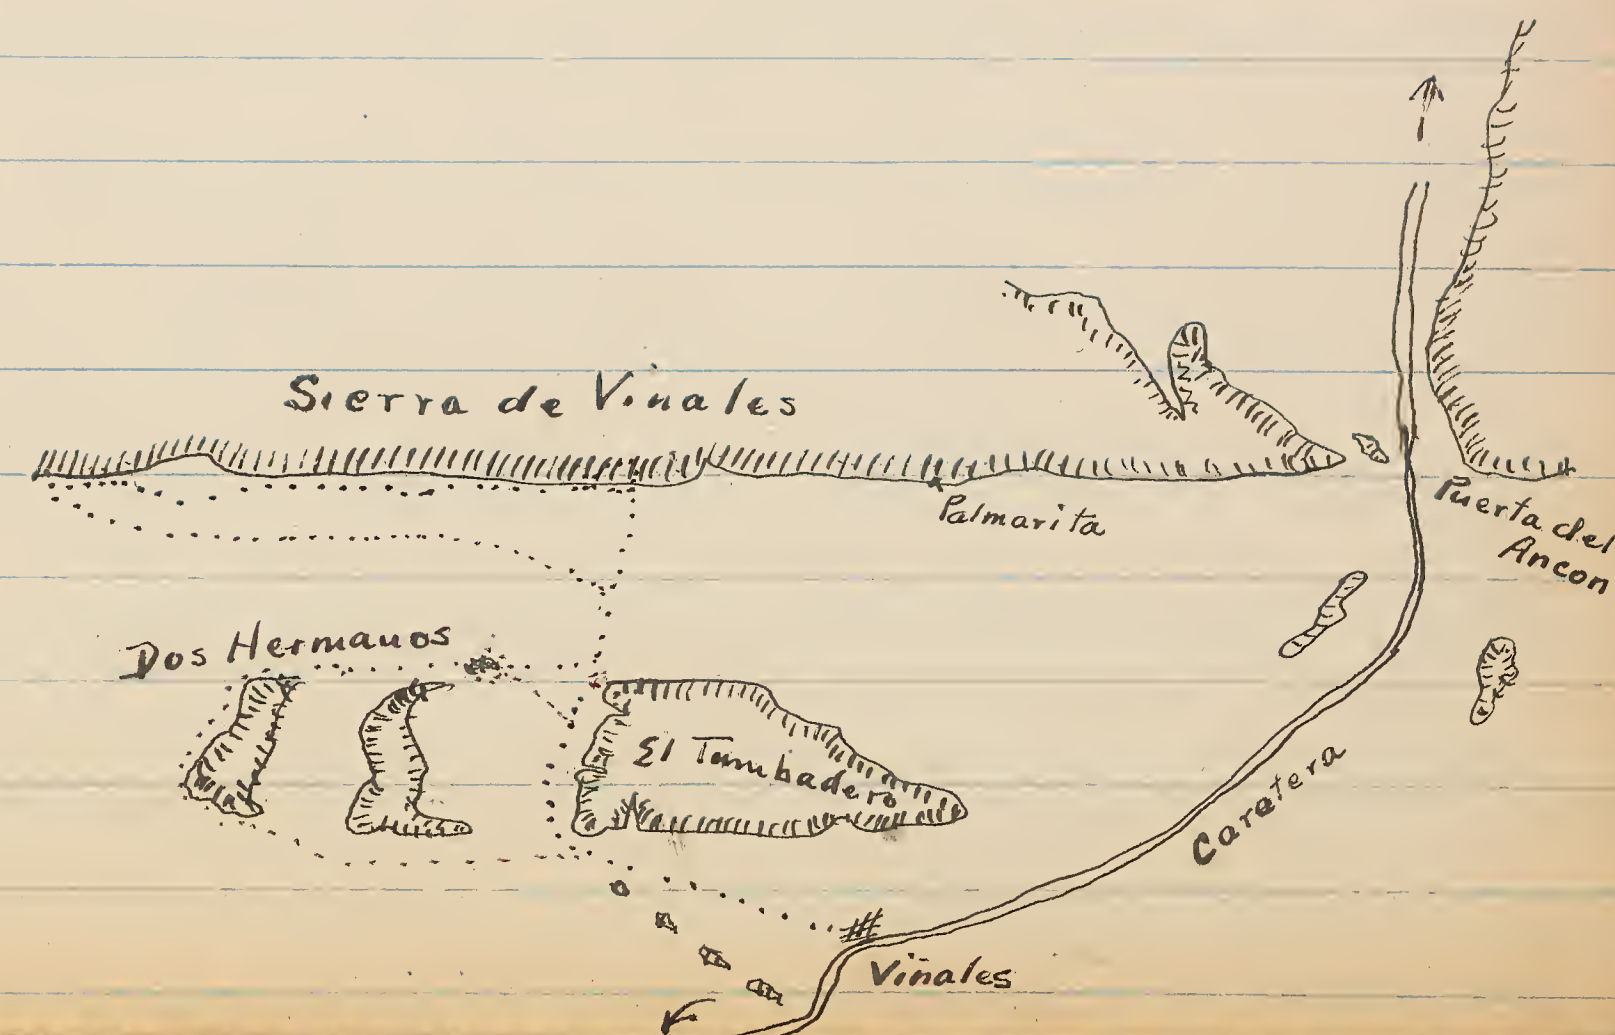 Sierra de Viñales
Palmarita
Puerta del
Ancon
Dos Hermanos
El Tumbadero
Caratera
Viñales